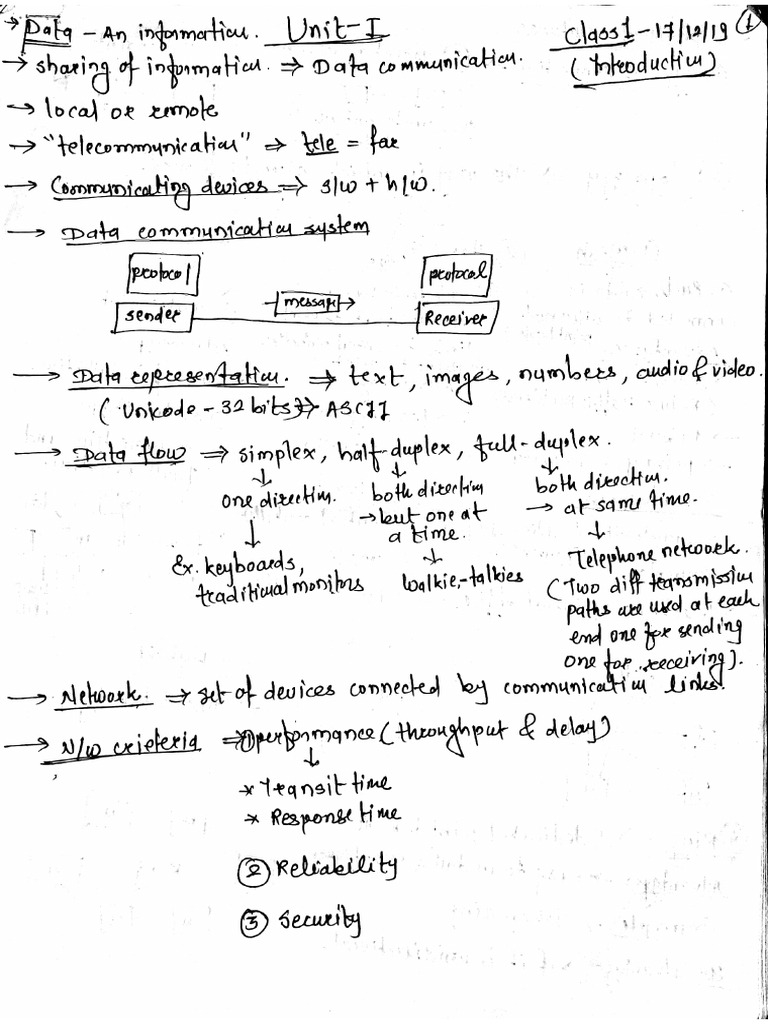 → Data – An information. Unit-I Class1 – 17/12/19 ①
→ sharing of information. ⇒ Data communication. (Introduction)
→ local or remote
→ "telecommunication" ⇒ tele = far
→ Communicating devices ⇒ s/w + h/w.
→ Data communication system
protocol protocol
sender message Receiver
→ Data representation. ⇒ text, images, numbers, audio & video.
(Unicode – 32 bits) → ASCII
→ Data flow ⇒ simplex, half-duplex, full-duplex.
↓ ↓ ↓
one direction. both direction both direction.
→ but one at → at same time.
a time.
↓ ↓ ↓
Ex. keyboards, Walkie-talkies Telephone network.
traditional monitors (Two diff transmission
paths are used at each
end one for sending
one for receiving).
→ Network. ⇒ set of devices connected by communication links.
→ N/w crieteria ⇒ ① performance (throughput & delay)
↓
* Transit time
* Response time
② Reliability
③ Security